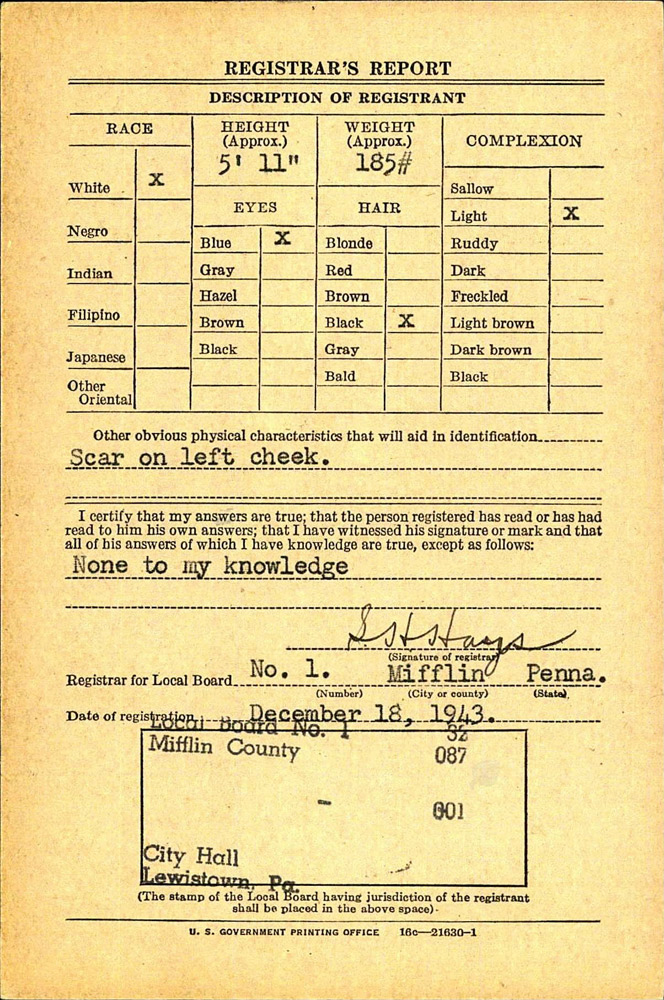 REGISTRAR'S REPORT
DESCRIPTION OF REGISTRANT
RACE
HEIGHT
(Approx.)
WEIGHT
(Approx.)
COMPLEXION
5' 11"
185#
White X
Sallow
EYES
HAIR
Light X
Negro
Blue X
Blonde
Ruddy
Indian
Gray
Red
Dark
Hazel
Brown
Freckled
Filipino
Brown
Black X
Light brown
Japanese
Black
Gray
Dark brown
Other
Oriental
Bald
Black
Other obvious physical characteristics that will aid in identification
Scar on left cheek.
I certify that my answers are true; that the person registered has read or has had
read to him his own answers; that I have witnessed his signature or mark and that
all of his answers of which I have knowledge are true, except as follows:
None to my knowledge
(Signature of registrar)
Registrar for Local Board No. 1. Mifflin Penna.
(Number) (City or county) (State)
Date of registration December 18, 1943.
Local Board No. 1 32
Mifflin County 087
- 001
City Hall
Lewistown, Pa.
(The stamp of the Local Board having jurisdiction of the registrant
shall be placed in the above space)
U. S. GOVERNMENT PRINTING OFFICE 16c—21630-1